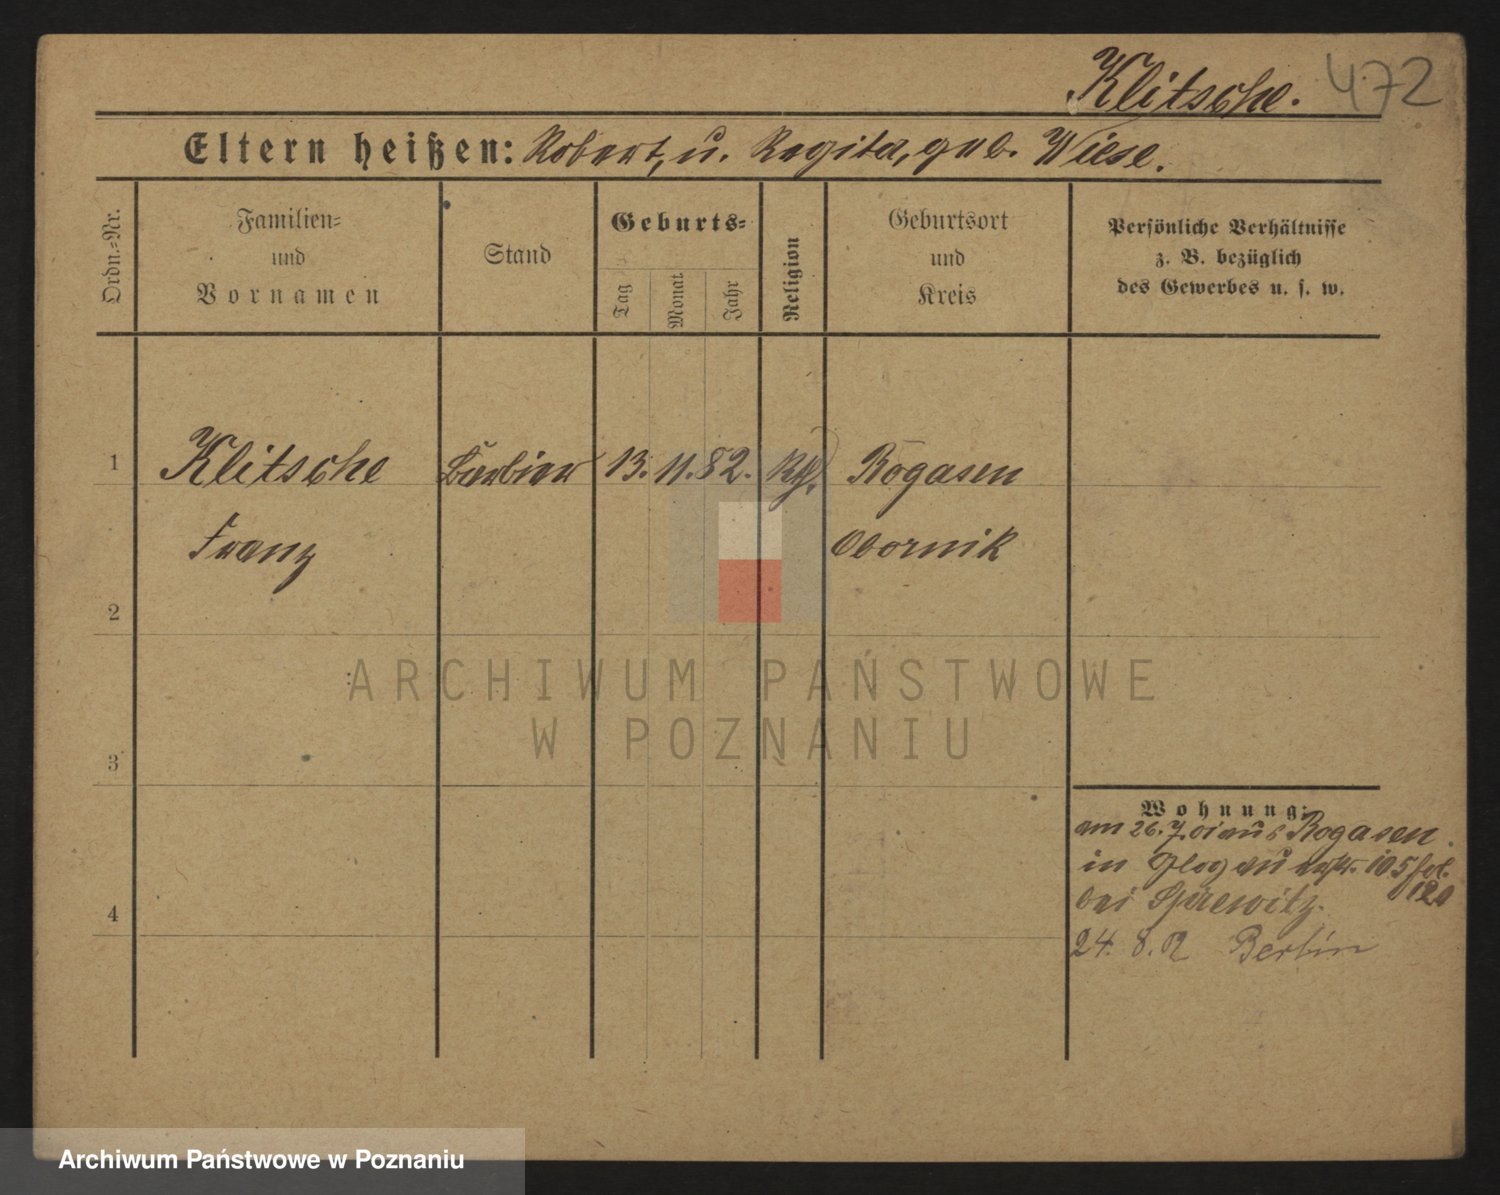 Klitsche. 472
Eltern heißen: Robert, u. Regita, geb. Wiese.
Ordn.=Nr.
Familien=
und
Vornamen
Stand
Geburts=
Tag
Monat
Jahr
Religion
Geburtsort
und
Kreis
Persönliche Verhältnisse
z. B. bezüglich
des Gewerbes u. s. w.
1 Klitsche Barbier 13. 11. 82. Rogasen
Franz Obornik
2
3
4
Wohnung:
am 26. 7. 01 aus Rogasen.
in Glogau 105 fol.
bei 120
24. 8. Berlin
ARCHIWUM PAŃSTWOWE
W POZNANIU
Archiwum Państwowe w Poznaniu